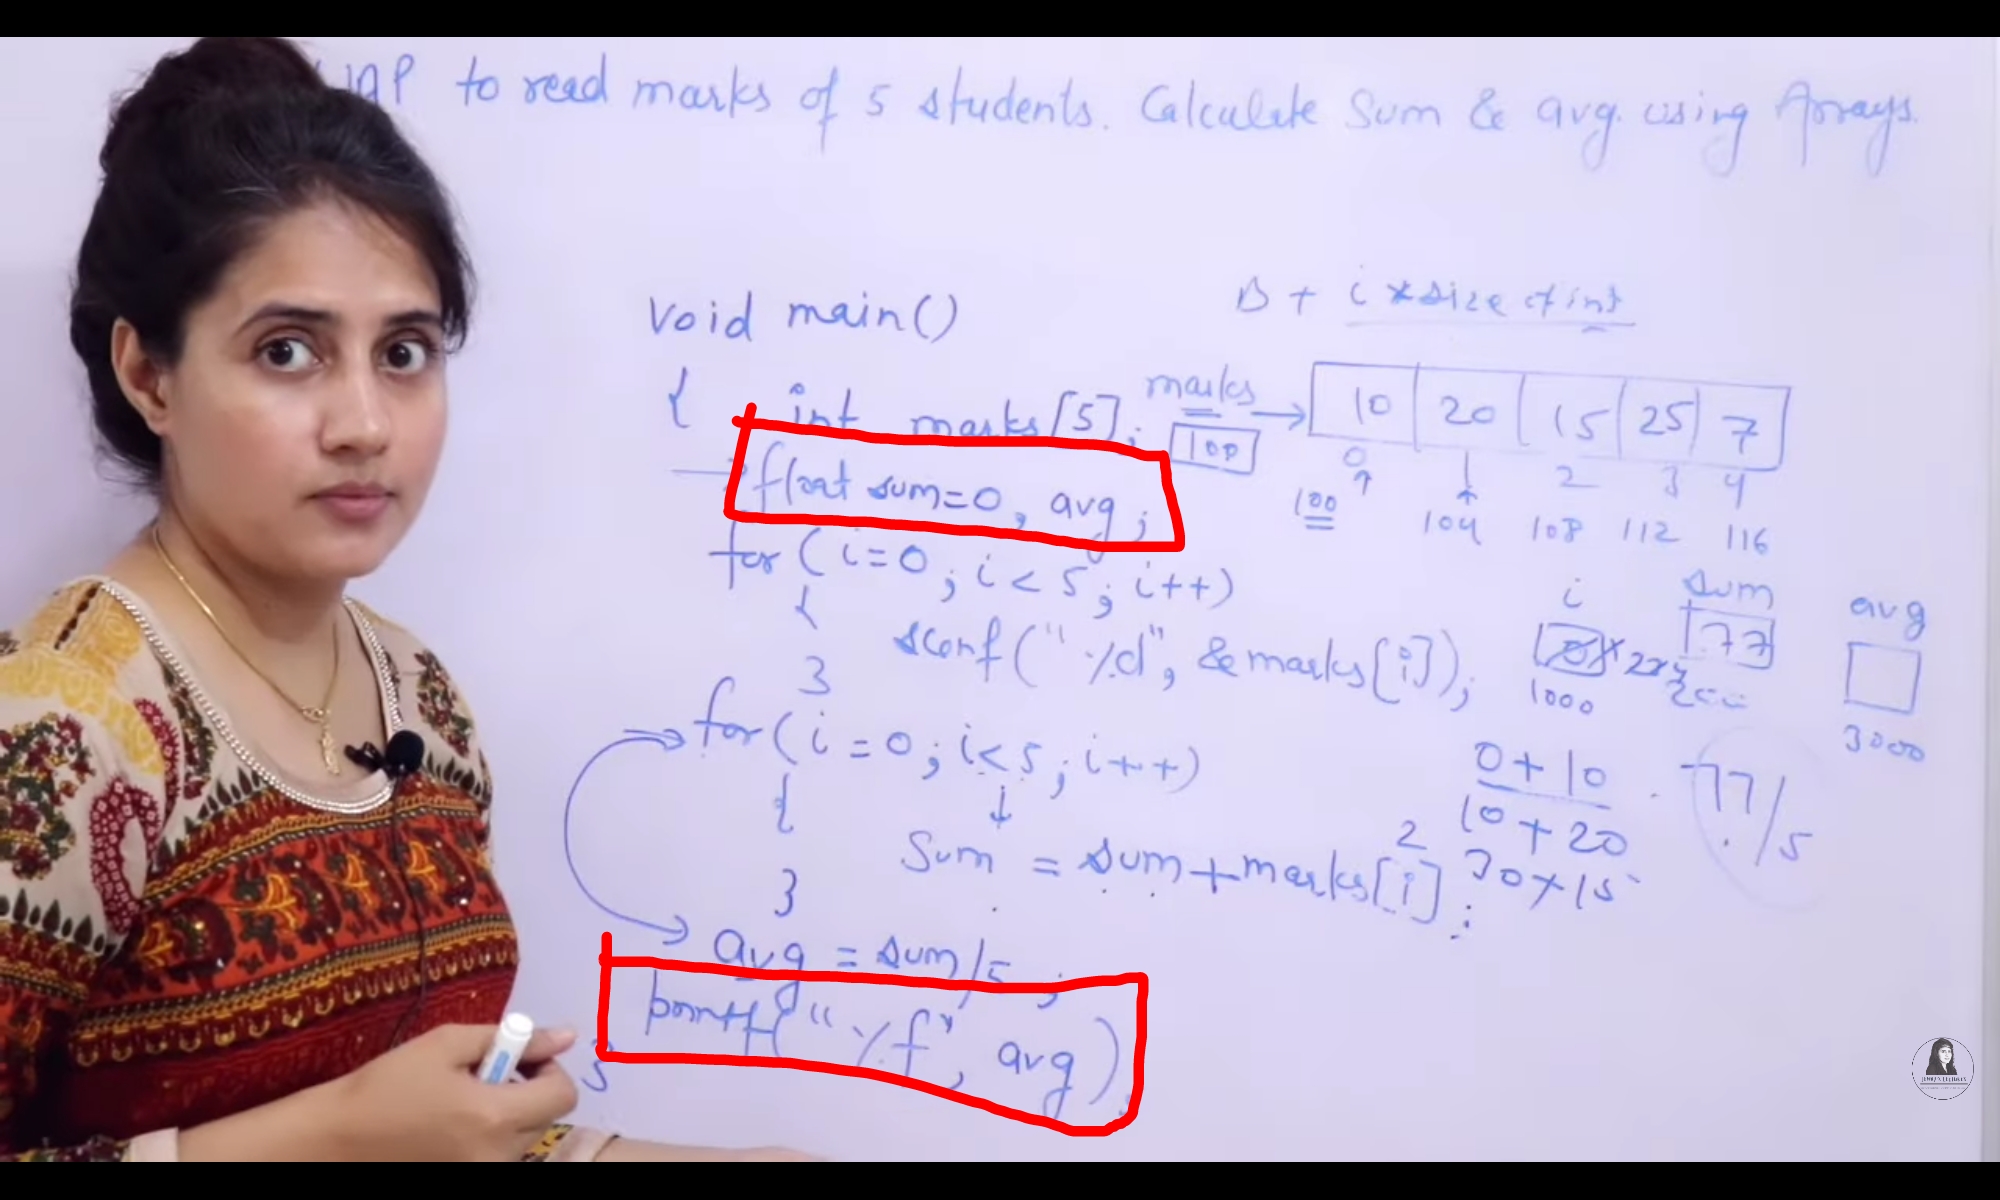 WAP to read marks of 5 students. Calculate Sum & avg. using Arrays.
void main()
{ int marks[5];
float sum=0, avg;
for (i=0; i<5; i++)
{
scanf("%d", &marks[i]);
}
for (i=0; i<5; i++)
{
Sum = sum+marks[i];
}
avg = sum/5;
printf("%f", avg);
}
B + i * size of int
marks
100
10 20 15 25 7
0 1 2 3 4
100 104 108 112 116
i sum avg
77
1000 3000
0+10
10+20
30+15
2
77/5